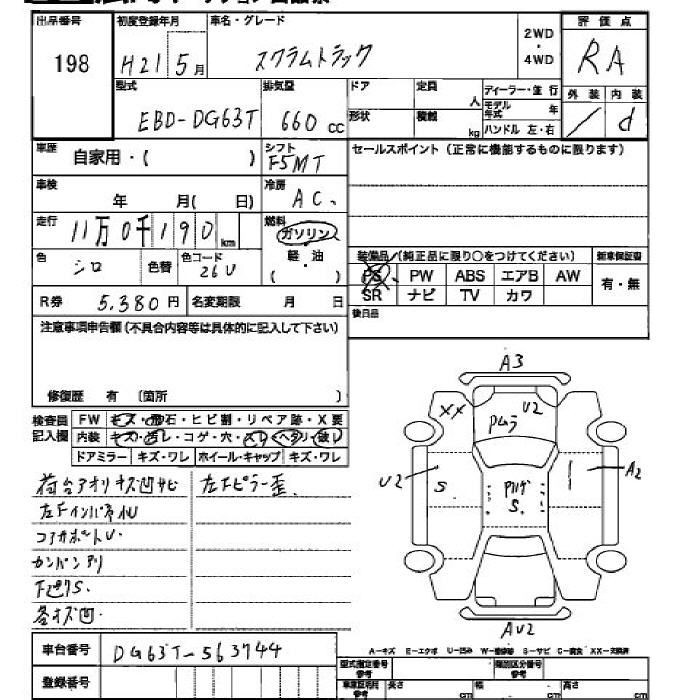 出品番号 初度登録年月 車名・グレード 評価点
198 H21 5月 スクラムトラック 2WD・4WD RA
型式 排気量 ドア 定員 人 ディーラー・並行 外装 内装
EBD-DG63T 660cc 形状 積載 kg モデル年式 年 ハンドル 左・右 / d
車歴 自家用・( ) シフト F5MT セールスポイント(正常に機能するものに限ります)
車検 年 月( 日) 冷房 AC、
走行 11万0千190km 燃料 ガソリン
色 シロ 色替 色コード 26U 軽・油 ( )
装備品/(純正品に限り○をつけてください) 新車保証書
PS PW ABS エアB AW 有・無
SR ナビ TV カワ
R券 5.380円 名変期限 月 日 後日品
注意事項申告欄(不具合内容等は具体的に記入して下さい)
修復歴 有 (箇所 )
検査員記入欄 FW キズ・飛石・ヒビ割・リペア跡・X要
内装 キズ・ヨゴレ・コゲ・穴・スレ・ヘタリ・破レ
ドアミラー キズ・ワレ ホイール・キャップ キズ・ワレ
荷台アオリキズ凹サビ 左Fピラー歪
左FインパネU
コアサポートU・
カンバンアリ
下廻りS.
各キズ凹・
A3
XX U2
PムラU2 S. A2
S.
AU2
車台番号 DG63T-563744
登録番号
A-キズ E-エクボ U-凹み W-補修跡 S-サビ C-腐食 XX-交換済
型式指定番号 類別区分番号
参考 長さ cm 幅 cm 高さ cm